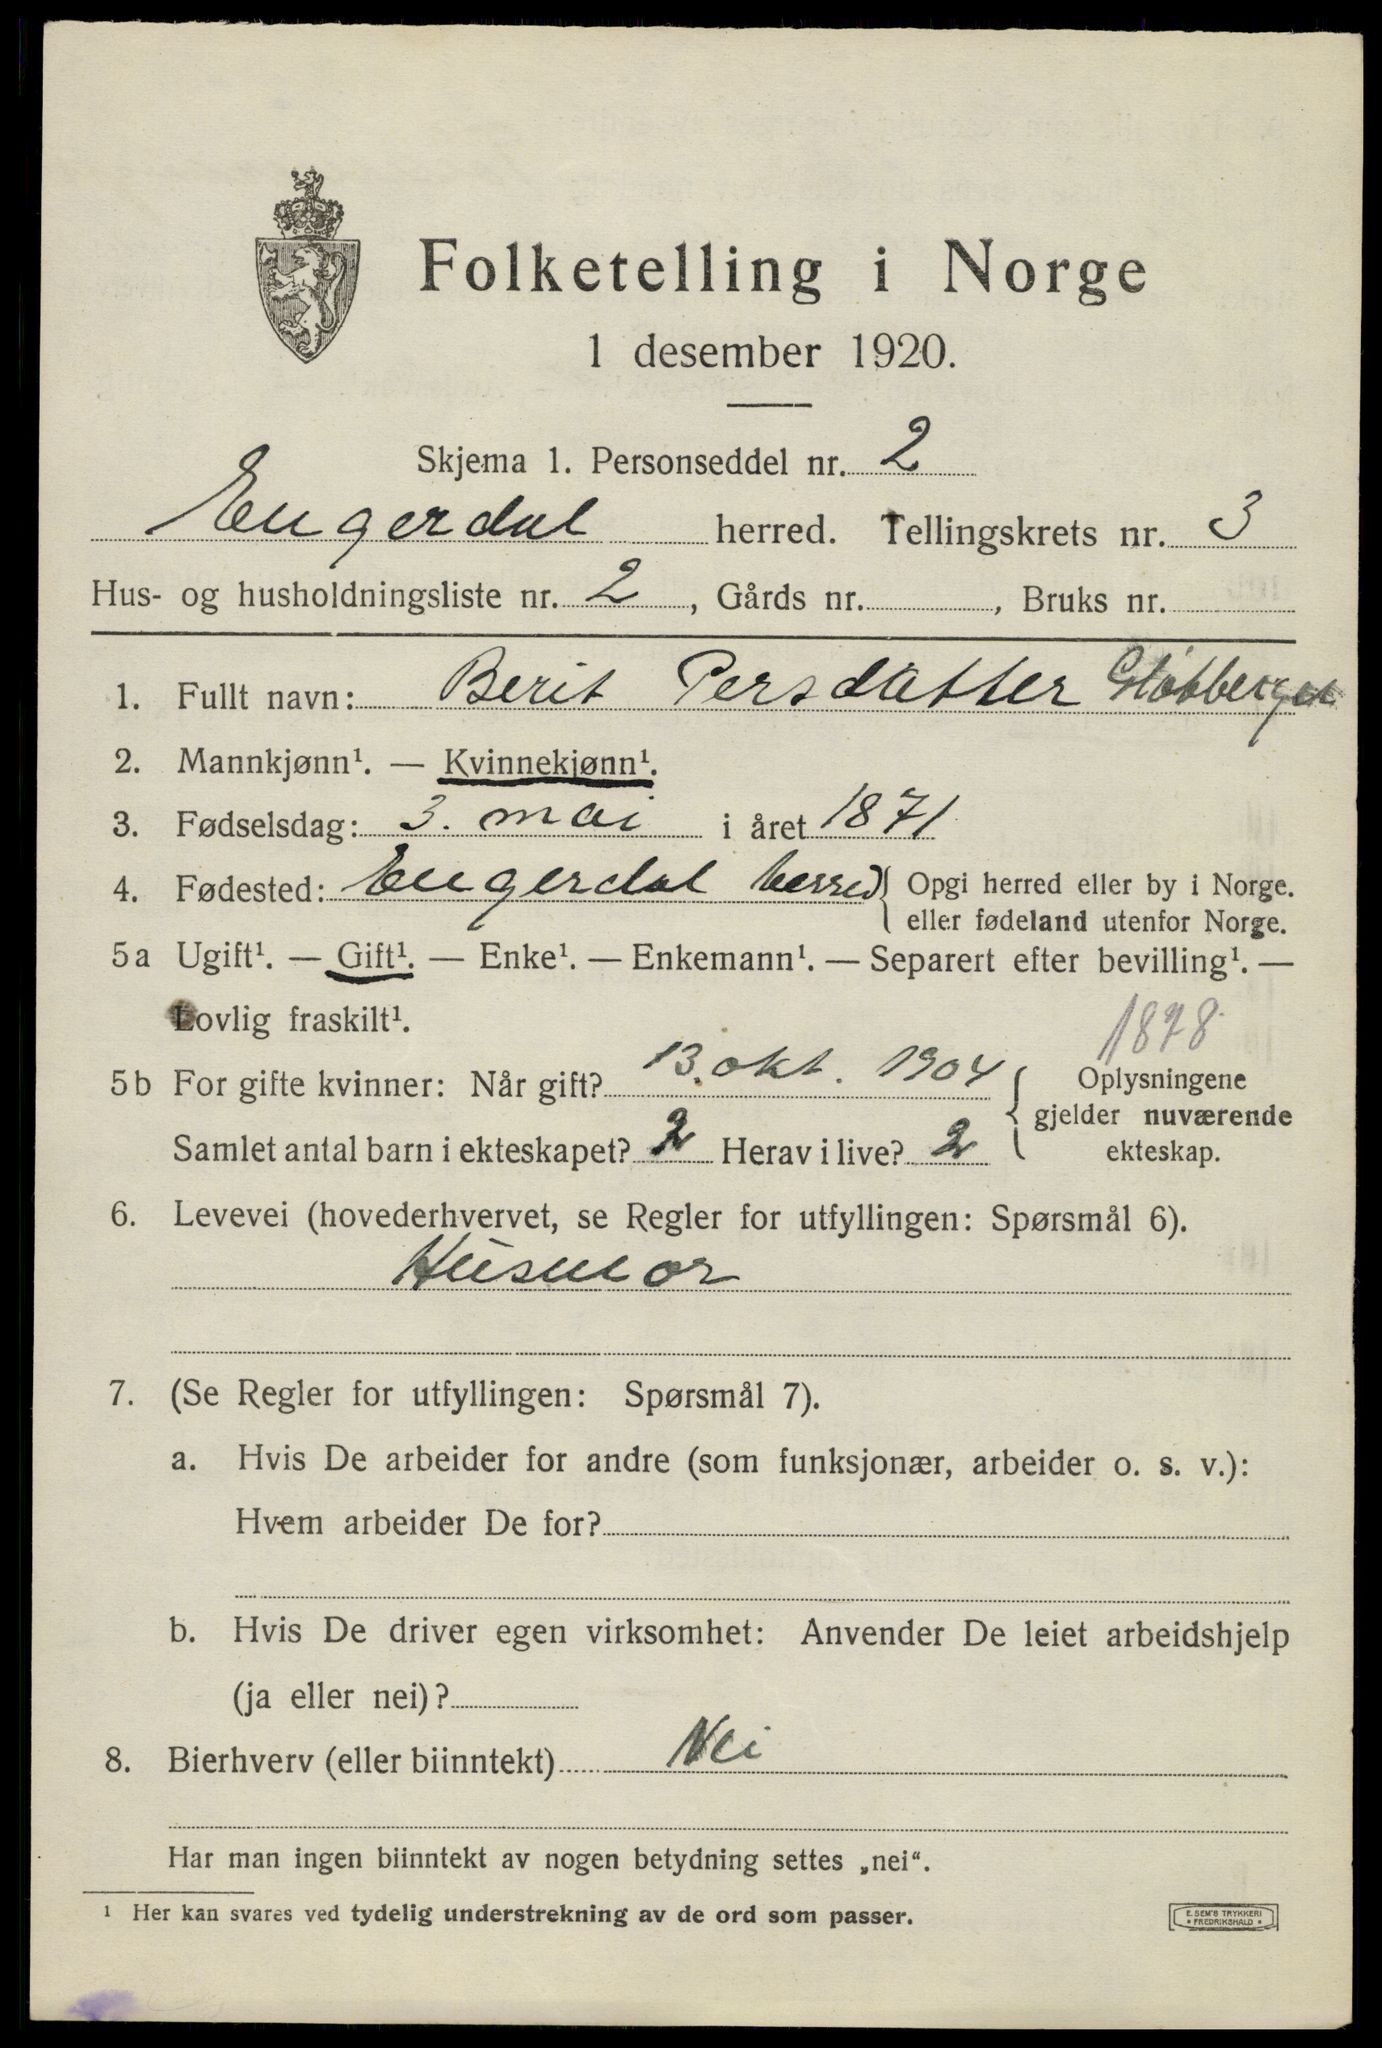 Folketelling i Norge
1 desember 1920.
Skjema 1. Personseddel nr. 2
Engerdal herred. Tellingskrets nr. 3
Hus- og husholdningsliste nr. 2, Gårds nr. , Bruks nr.
1. Fullt navn: Berit Persdatter
2. Mannkjønn¹. — Kvinnekjønn¹.
3. Fødselsdag: 3. mai i året 1871
4. Fødested: Engerdal herred { Opgi herred eller by i Norge.
eller fødeland utenfor Norge.
5a Ugift¹. — Gift¹. — Enke¹. — Enkemann¹. — Separert efter bevilling¹. —
Lovlig fraskilt¹.
1878
5b For gifte kvinner: Når gift? 13. okt. 1904 { Oplysningene
gjelder nuværende
Samlet antal barn i ekteskapet? 2 Herav i live? 2 ekteskap.
6. Levevei (hovederhvervet, se Regler for utfyllingen: Spørsmål 6).
Husmor
7. (Se Regler for utfyllingen: Spørsmål 7).
a. Hvis De arbeider for andre (som funksjonær, arbeider o. s. v.):
Hvem arbeider De for?
b. Hvis De driver egen virksomhet: Anvender De leiet arbeidshjelp
(ja eller nei)?
8. Bierhverv (eller biinntekt) Nei
Har man ingen biinntekt av nogen betydning settes „nei“.
¹ Her kan svares ved tydelig understrekning av de ord som passer.
E. SEM'S TRYKKERI
* FREDRIKSHALD *